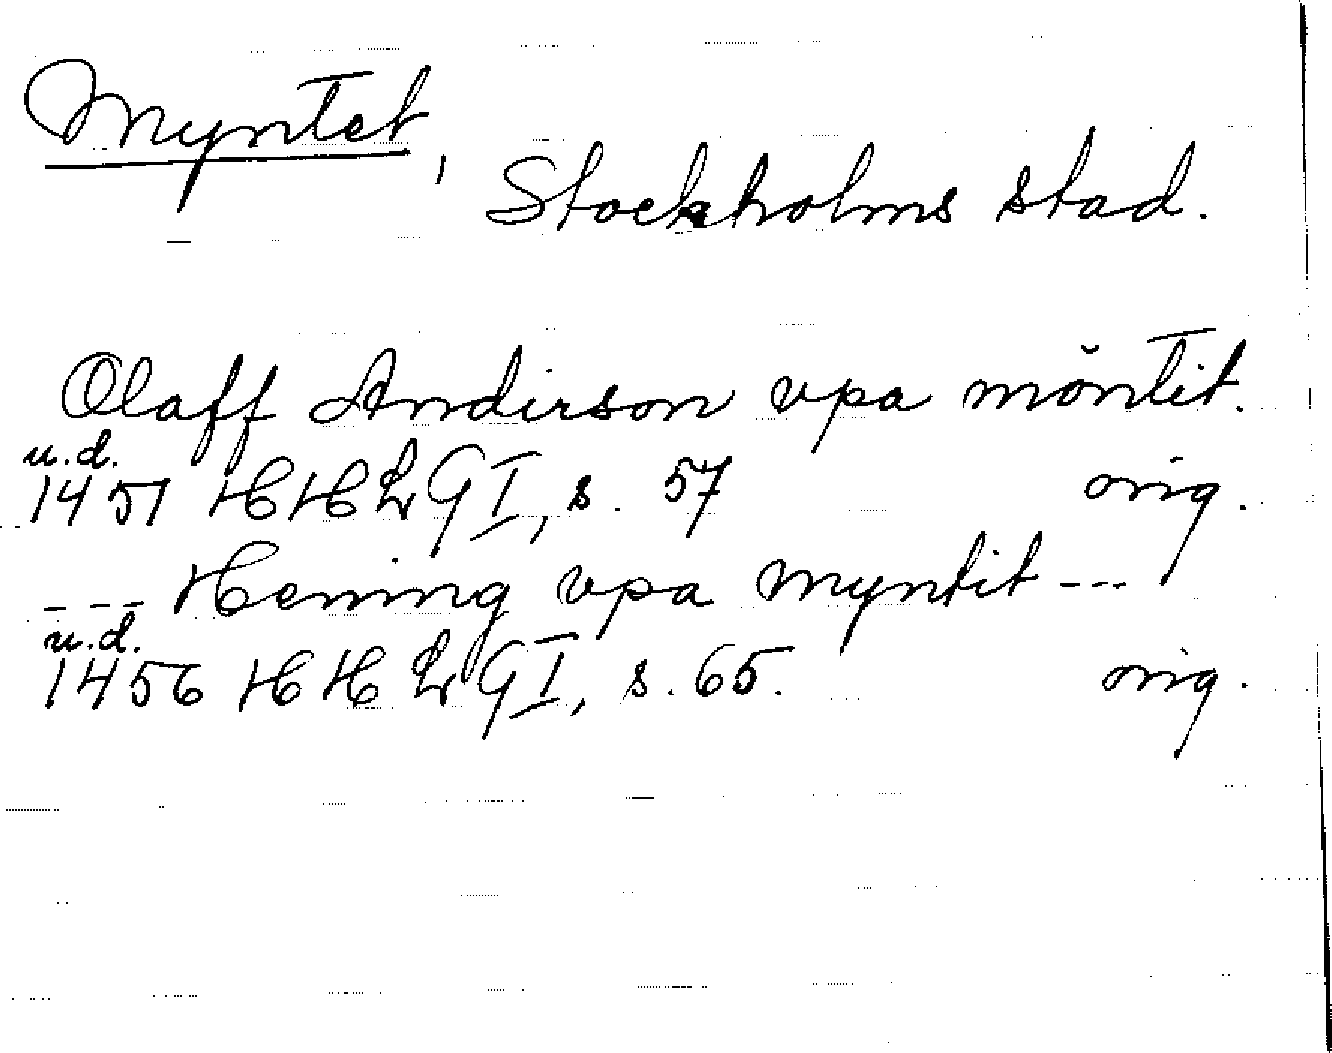 Myntet,
Stockholms stad.
Olaff Andirson vpa möntit.
u.d.
1451 HHLGI, s. 57 orig.
--- Hening vpa myntit ---
u.d.
1456 HHLGI, s. 65. orig.